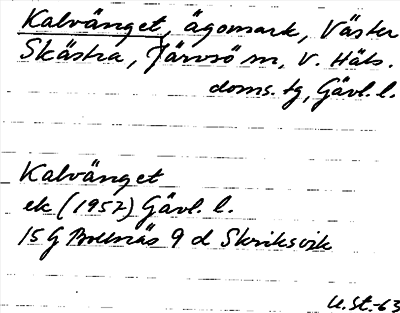 Kalvänget, ägomark, Väster
Skästra, Järvsö sn, V. Häls.
doms. tg, Gävl. l.
Kalvänget
ek (1957) Gävl. l.
15 G Bollnäs 9 d Skriksvik
U.St.-63